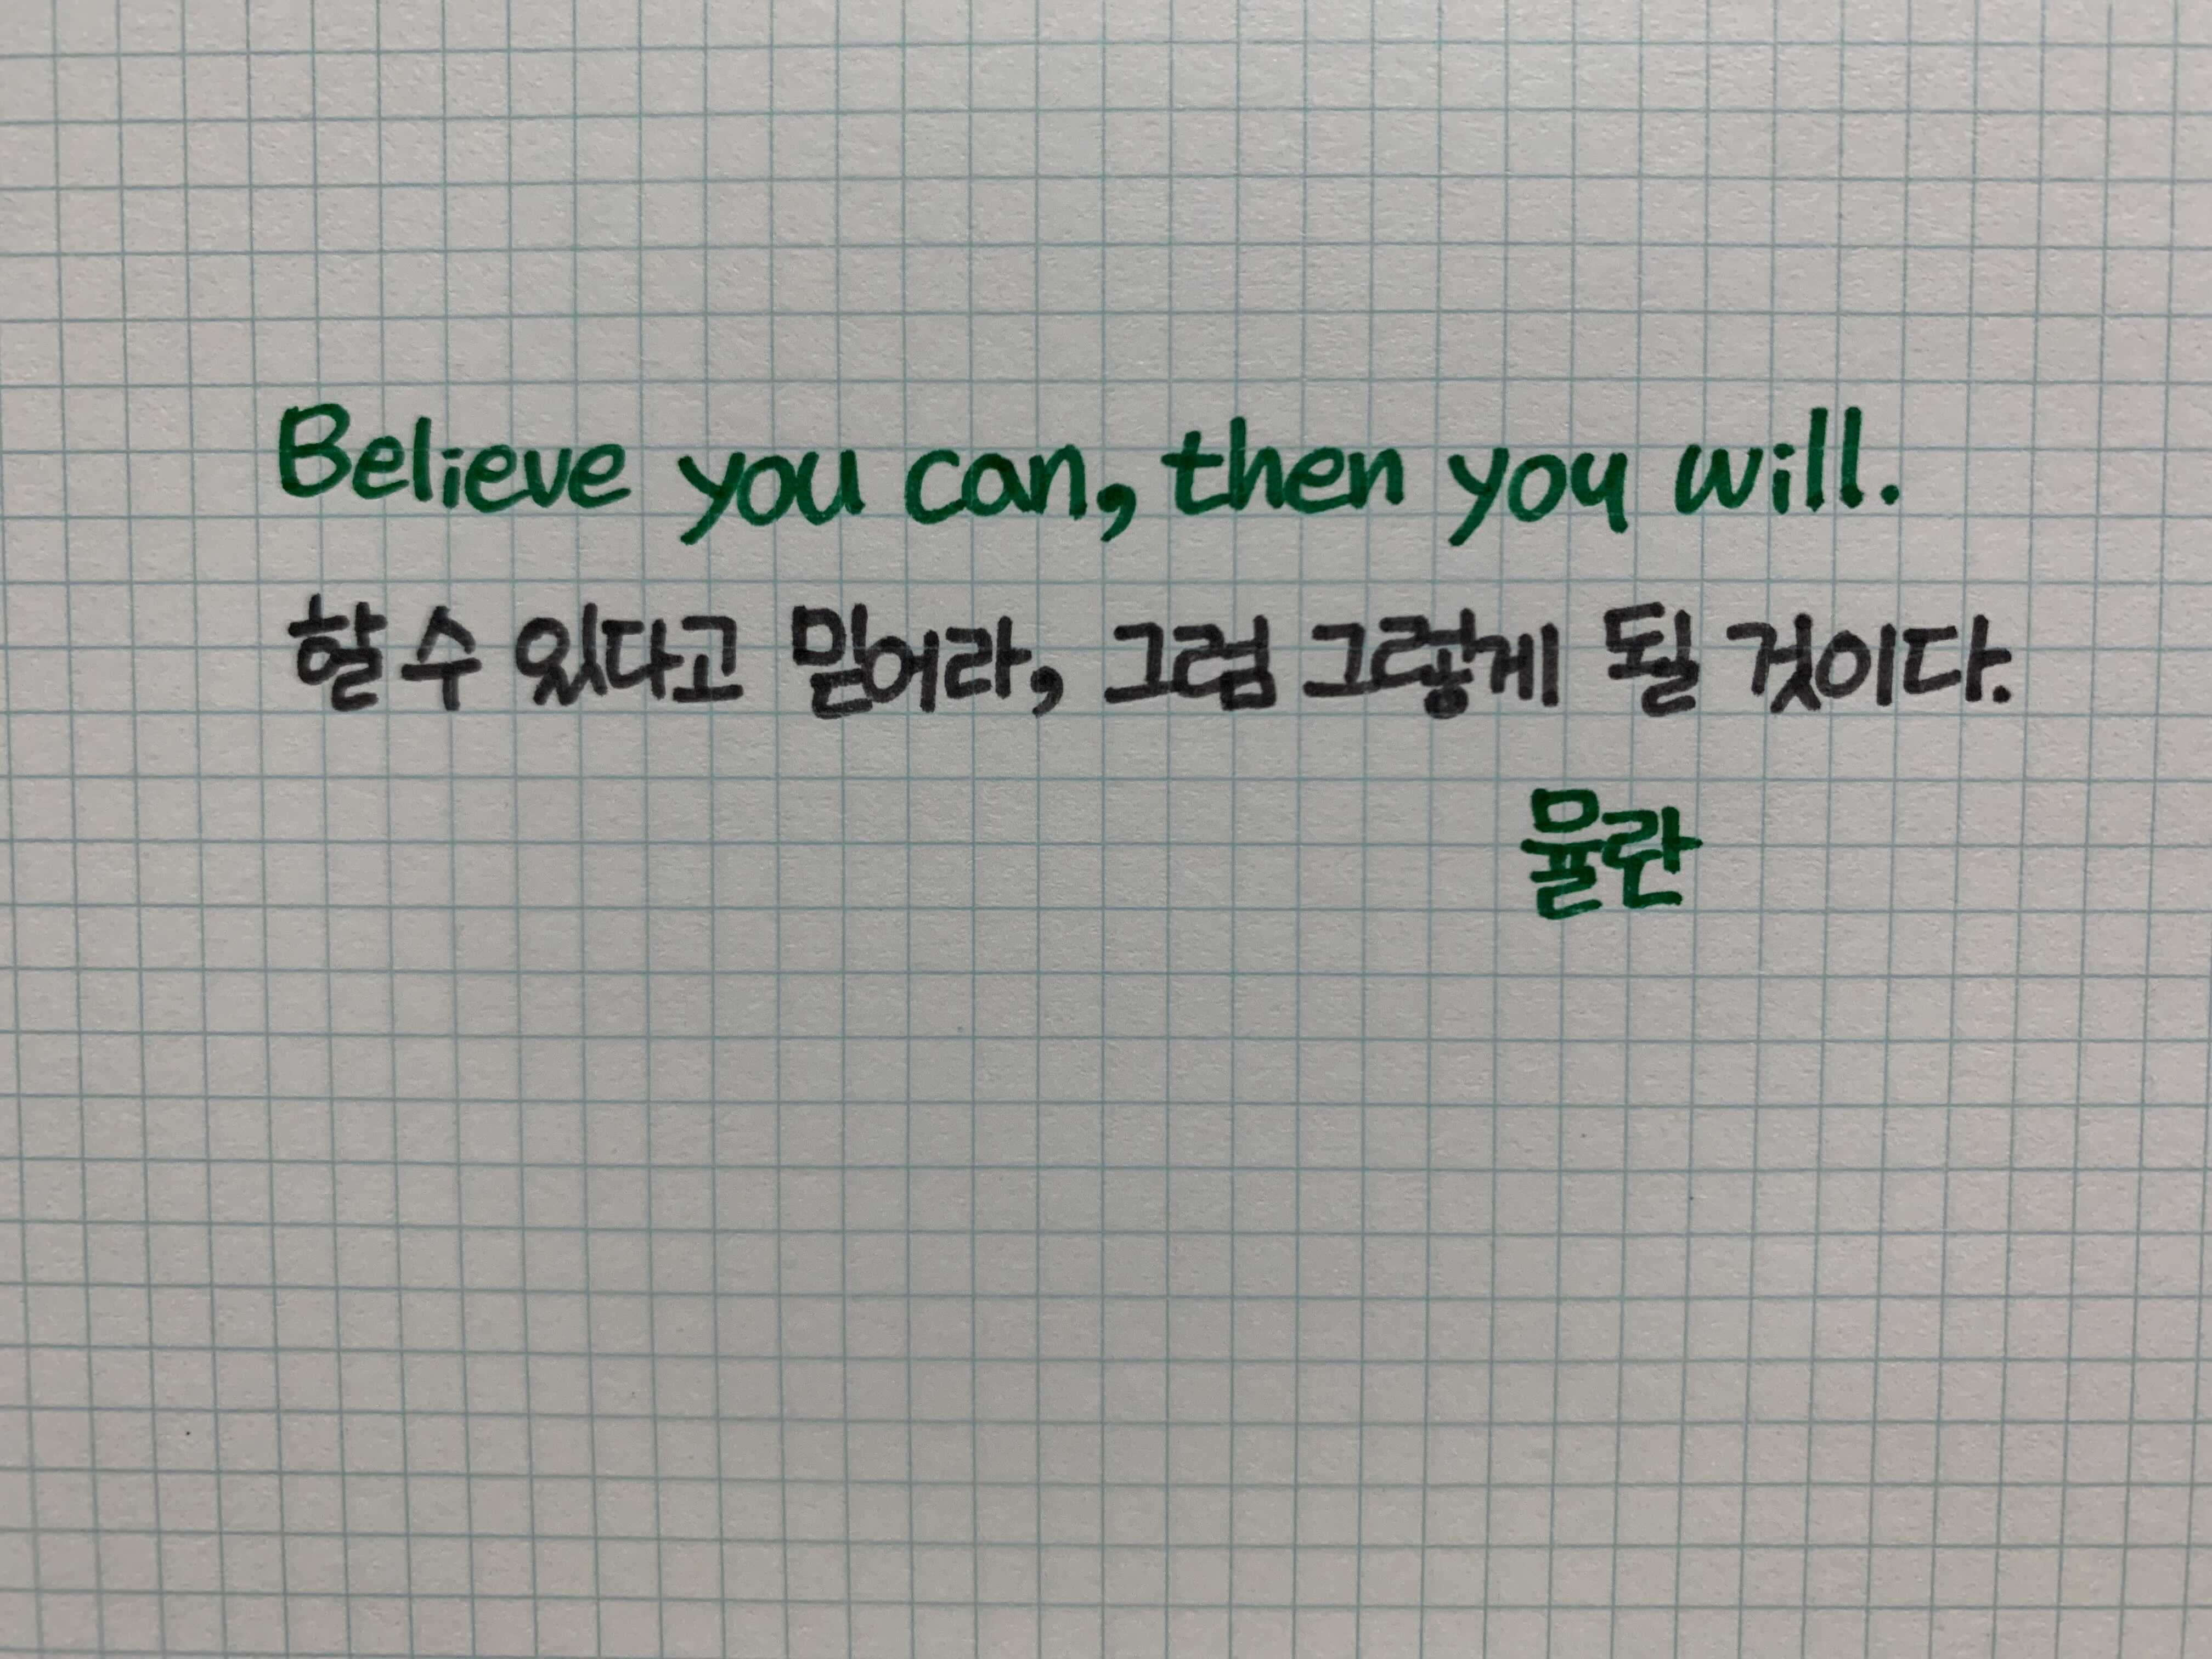 Believe you can, then you will.
할 수 있다고 믿어라, 그럼 그렇게 될 것이다.
뮬란